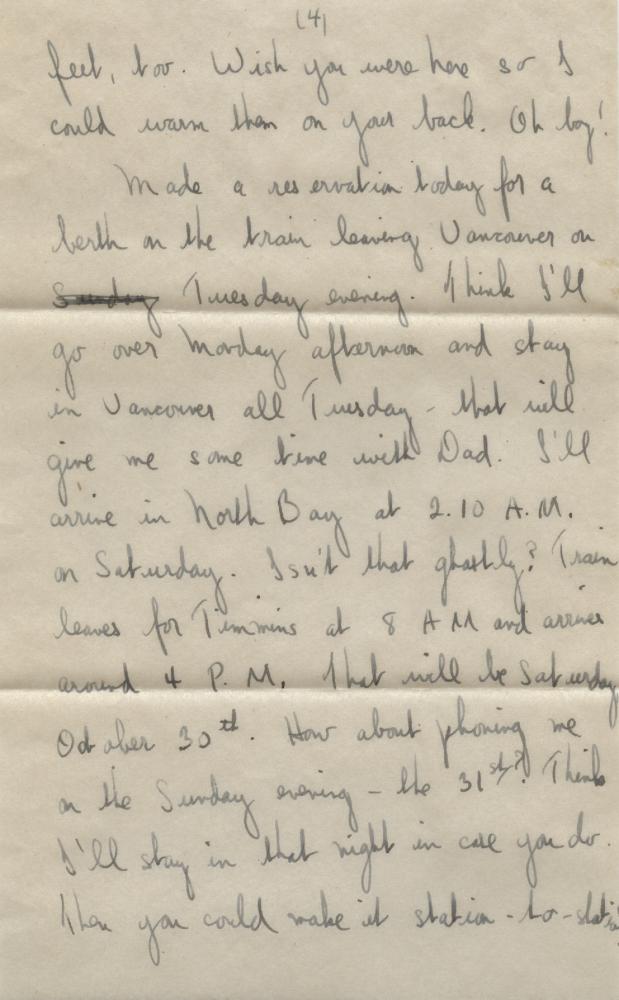 (4)
feet, too. Wish you were here so I
could warm them on your back. Oh boy!
Made a reservation today for a
berth on the train leaving Vancouver on
Sunday Tuesday evening. Think I'll
go over Monday afternoon and stay
in Vancouver all Tuesday - that will
give me some time with Dad. I'll
arrive in North Bay at 2.10 A.M.
on Saturday. Isn't that ghastly? Train
leaves for Timmins at 8 A M and arrives
around 4 P. M. That will be Saturday
October 30th. How about phoning me
on the Sunday evening - the 31st? Think
I'll stay in that night in case you do.
Then you could make it station-to-station